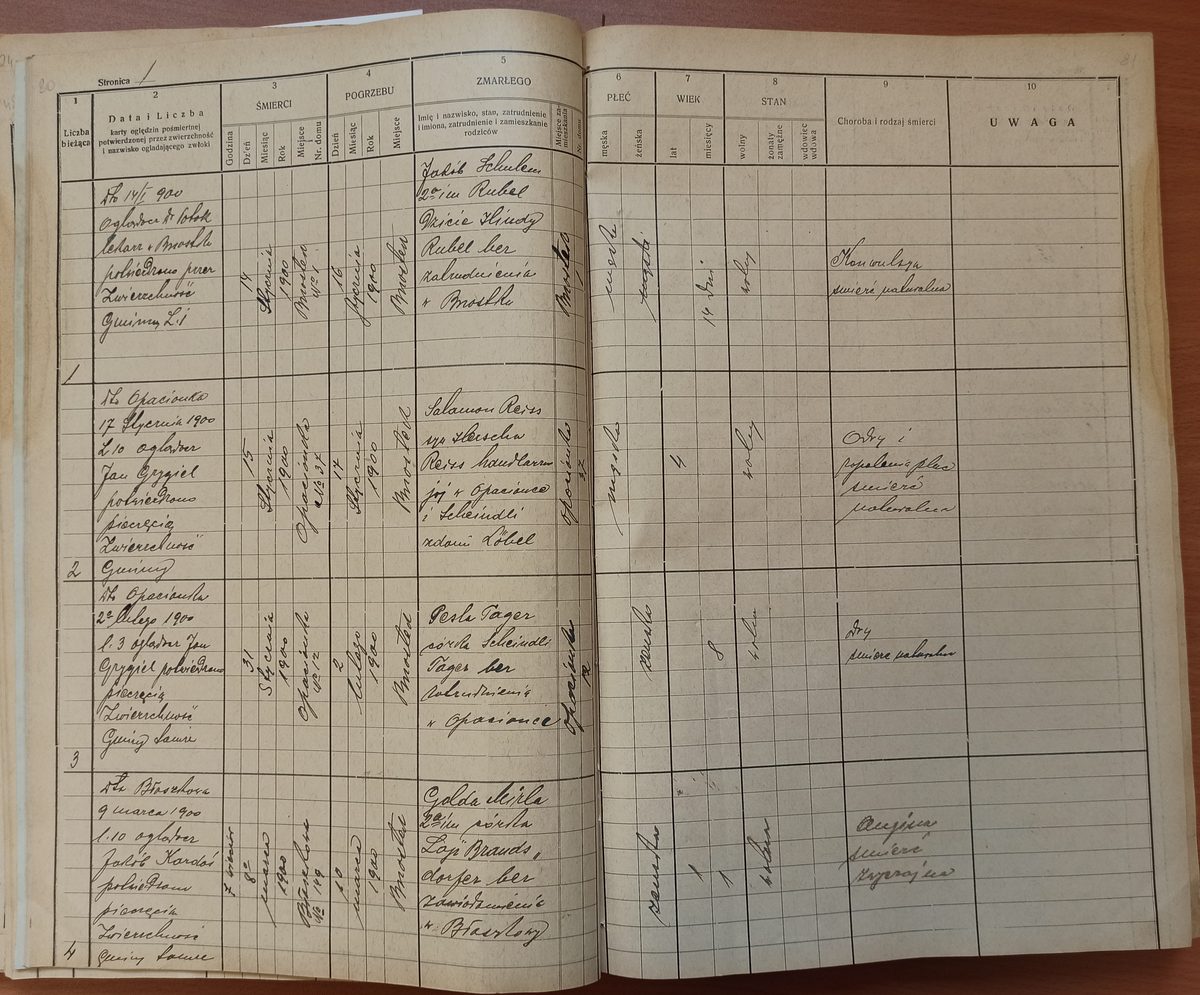 Stronica 1
1
2
3
4
5
6
7
8
9
10
Liczba
bieżąca
Data i Liczba
karty oględzin pośmiertnej
potwierdzonej przez zwierzchność
i nazwisko oglądającego zwłoki
ŚMIERCI
Godzina
Dzień
Miesiąc
Rok
Miejsce
Nr. domu
POGRZEBU
Dzień
Miesiąc
Rok
Miejsce
ZMARŁEGO
Imię i nazwisko, stan, zatrudnienie
i imiona, zatrudnienie i zamieszkanie
rodziców
Miejsce za-
mieszkania
Nr. domu
PŁEĆ
męska
żeńska
WIEK
lat
miesięcy
STAN
wolny
żonaty
zamężna
wdowiec
wdowa
Choroba i rodzaj śmierci
UWAGA
1
Dto 14/I 900
Oglądacz Dr
lekarz w
potwierdzono przez
Zwierzchność
Gminną L. 1
14
Stycznia
1900
Brostek
No 1
16
stycznia
1900
Brostek
Jakób Schulem
2a im Rubel
Dziecie Hindy
Rubel bez
zatrudnienia
w Brostku
Brostek
1
męska
14 dni
wolny
Konwulsya
śmierć naturalna
2
Dto Opacionka
17 Stycznia 1900
L 10 oglądacz
Jan Grygiel
potwierdzono
pieczęcią
Zwierzchność
Gminy
15
Stycznia
1900
Opacionka
No 37
17
Stycznia
1900
Brostek
Salamon Reiss
syn Herscha
Reiss handlarza
jaj w Opacionce
i Scheindli
z domu Löbel
Opacionka
37
męska
4
wolny
Odry i
zapalenia płuc
śmierć
naturalna
3
Dto Opacionka
2o lutego 1900
l. 3 oglądacz Jan
Grygiel potwierdzono
pieczęcią
Zwierzchność
Gminy
31
Stycznia
1900
Opacionka
No 12
2
lutego
1900
Brostek
Pesla Tager
córka Scheindli
Tager bez
zatrudnienia
w Opacionce
Opacionka
12
żeńska
8
wolna
Odry
śmierć naturalna
4
Dto Błaszkowa
9 marca 1900
l. 10 oglądacz
Jakób Kordaś
potwierdzono
pieczęcią
Zwierzchność
Gminy
7 wieczór
8o
marca
1900
Błaszkowa
No 149
10
marca
1900
Brostek
Golda Mirla
2a im córka
Łaji Brands„
dorfer bez
w Błaszkowy
żeńska
1
1
wolna
Angina
śmierć